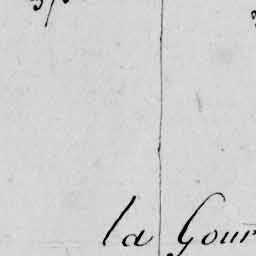 la Gour